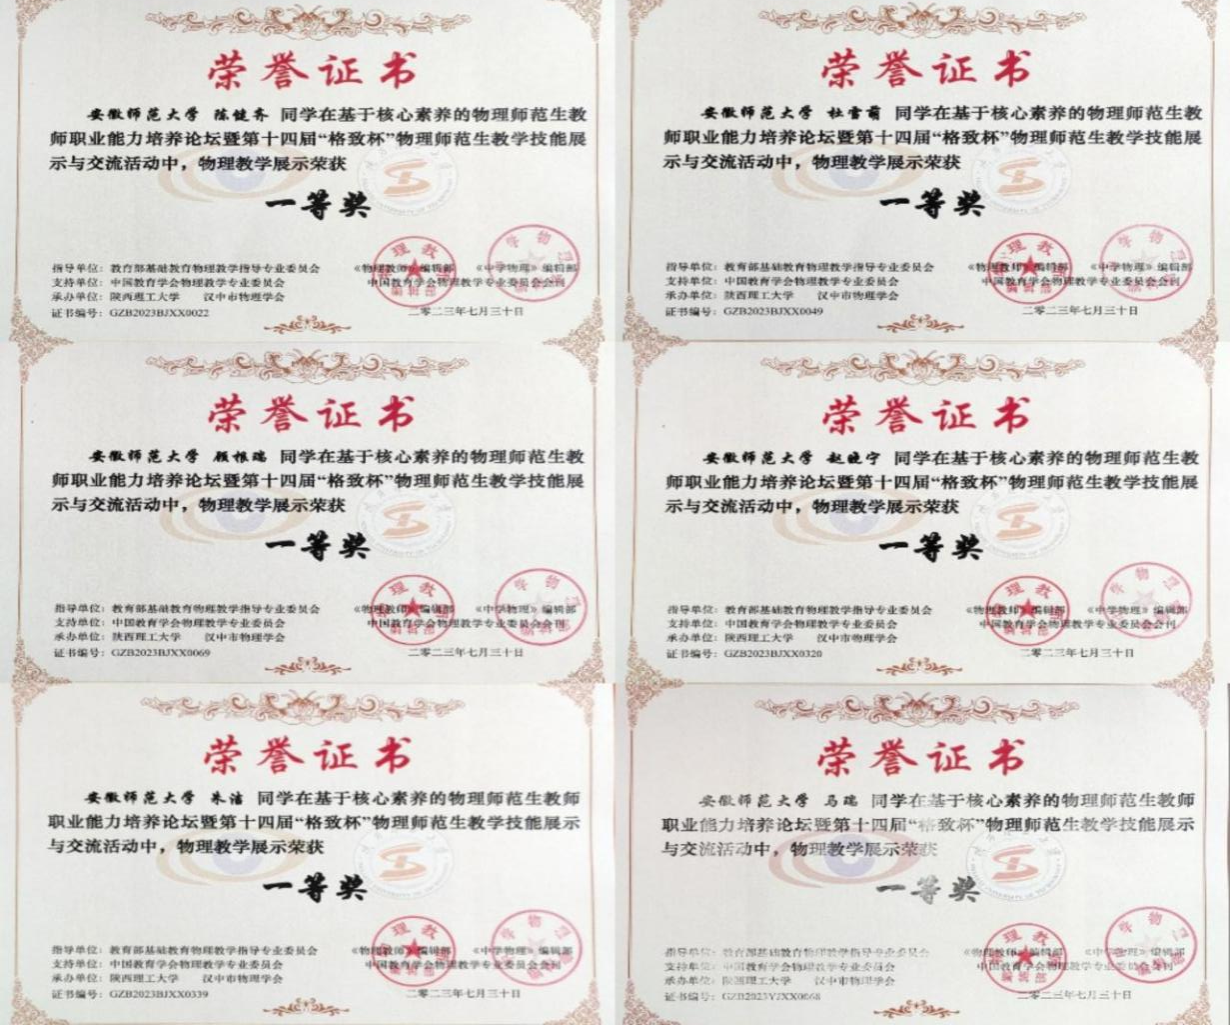 荣誉证书
安徽师范大学 陈健齐 同学在基于核心素养的物理师范生教
师职业能力培养论坛暨第十四届“格致杯”物理师范生教学技能展
示与交流活动中，物理教学展示荣获
一等奖
指导单位：教育部基础教育物理教学指导专业委员会 《物理教师》编辑部 《中学物理》编辑部
支持单位：中国教育学会物理教学专业委员会 中国教育学会物理教学专业委员会会刊
承办单位：陕西理工大学 汉中市物理学会
证书编号：GZB2023BJXX0022 二零二三年七月三十日
荣誉证书
安徽师范大学 杜雪萌 同学在基于核心素养的物理师范生教
师职业能力培养论坛暨第十四届“格致杯”物理师范生教学技能展
示与交流活动中，物理教学展示荣获
一等奖
指导单位：教育部基础教育物理教学指导专业委员会 《物理教师》编辑部 《中学物理》编辑部
支持单位：中国教育学会物理教学专业委员会 中国教育学会物理教学专业委员会会刊
承办单位：陕西理工大学 汉中市物理学会
证书编号：GZB2023BJXX0049 二零二三年七月三十日
荣誉证书
安徽师范大学 顾根瑞 同学在基于核心素养的物理师范生教
师职业能力培养论坛暨第十四届“格致杯”物理师范生教学技能展
示与交流活动中，物理教学展示荣获
一等奖
指导单位：教育部基础教育物理教学指导专业委员会 《物理教师》编辑部 《中学物理》编辑部
支持单位：中国教育学会物理教学专业委员会 中国教育学会物理教学专业委员会会刊
承办单位：陕西理工大学 汉中市物理学会
证书编号：GZB2023BJXX0069 二零二三年七月三十日
荣誉证书
安徽师范大学 赵晓宁 同学在基于核心素养的物理师范生教
师职业能力培养论坛暨第十四届“格致杯”物理师范生教学技能展
示与交流活动中，物理教学展示荣获
一等奖
指导单位：教育部基础教育物理教学指导专业委员会 《物理教师》编辑部 《中学物理》编辑部
支持单位：中国教育学会物理教学专业委员会 中国教育学会物理教学专业委员会会刊
承办单位：陕西理工大学 汉中市物理学会
证书编号：GZB2023BJXX0320 二零二三年七月三十日
荣誉证书
安徽师范大学 朱洁 同学在基于核心素养的物理师范生教师
职业能力培养论坛暨第十四届“格致杯”物理师范生教学技能展示
与交流活动中，物理教学展示荣获
一等奖
指导单位：教育部基础教育物理教学指导专业委员会 《物理教师》编辑部 《中学物理》编辑部
支持单位：中国教育学会物理教学专业委员会 中国教育学会物理教学专业委员会会刊
承办单位：陕西理工大学 汉中市物理学会
证书编号：GZB2023BJXX0339 二零二三年七月三十日
荣誉证书
安徽师范大学 马瑞 同学在基于核心素养的物理师范生教师
职业能力培养论坛暨第十四届“格致杯”物理师范生教学技能展示
与交流活动中，物理教学展示荣获
一等奖
指导单位：教育部基础教育物理教学指导专业委员会 《物理教师》编辑部 《中学物理》编辑部
支持单位：中国教育学会物理教学专业委员会 中国教育学会物理教学专业委员会会刊
承办单位：陕西理工大学 汉中市物理学会
证书编号： 二零二三年七月三十日